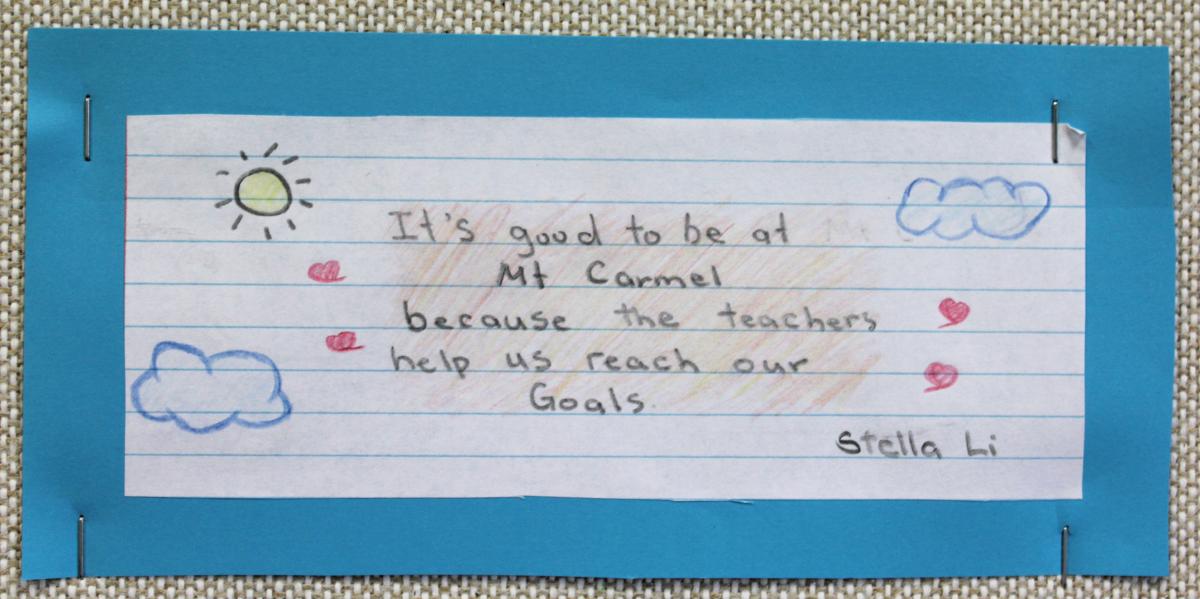 It's good to be at
Mt Carmel
because the teachers
help us reach our
Goals.
Stella Li